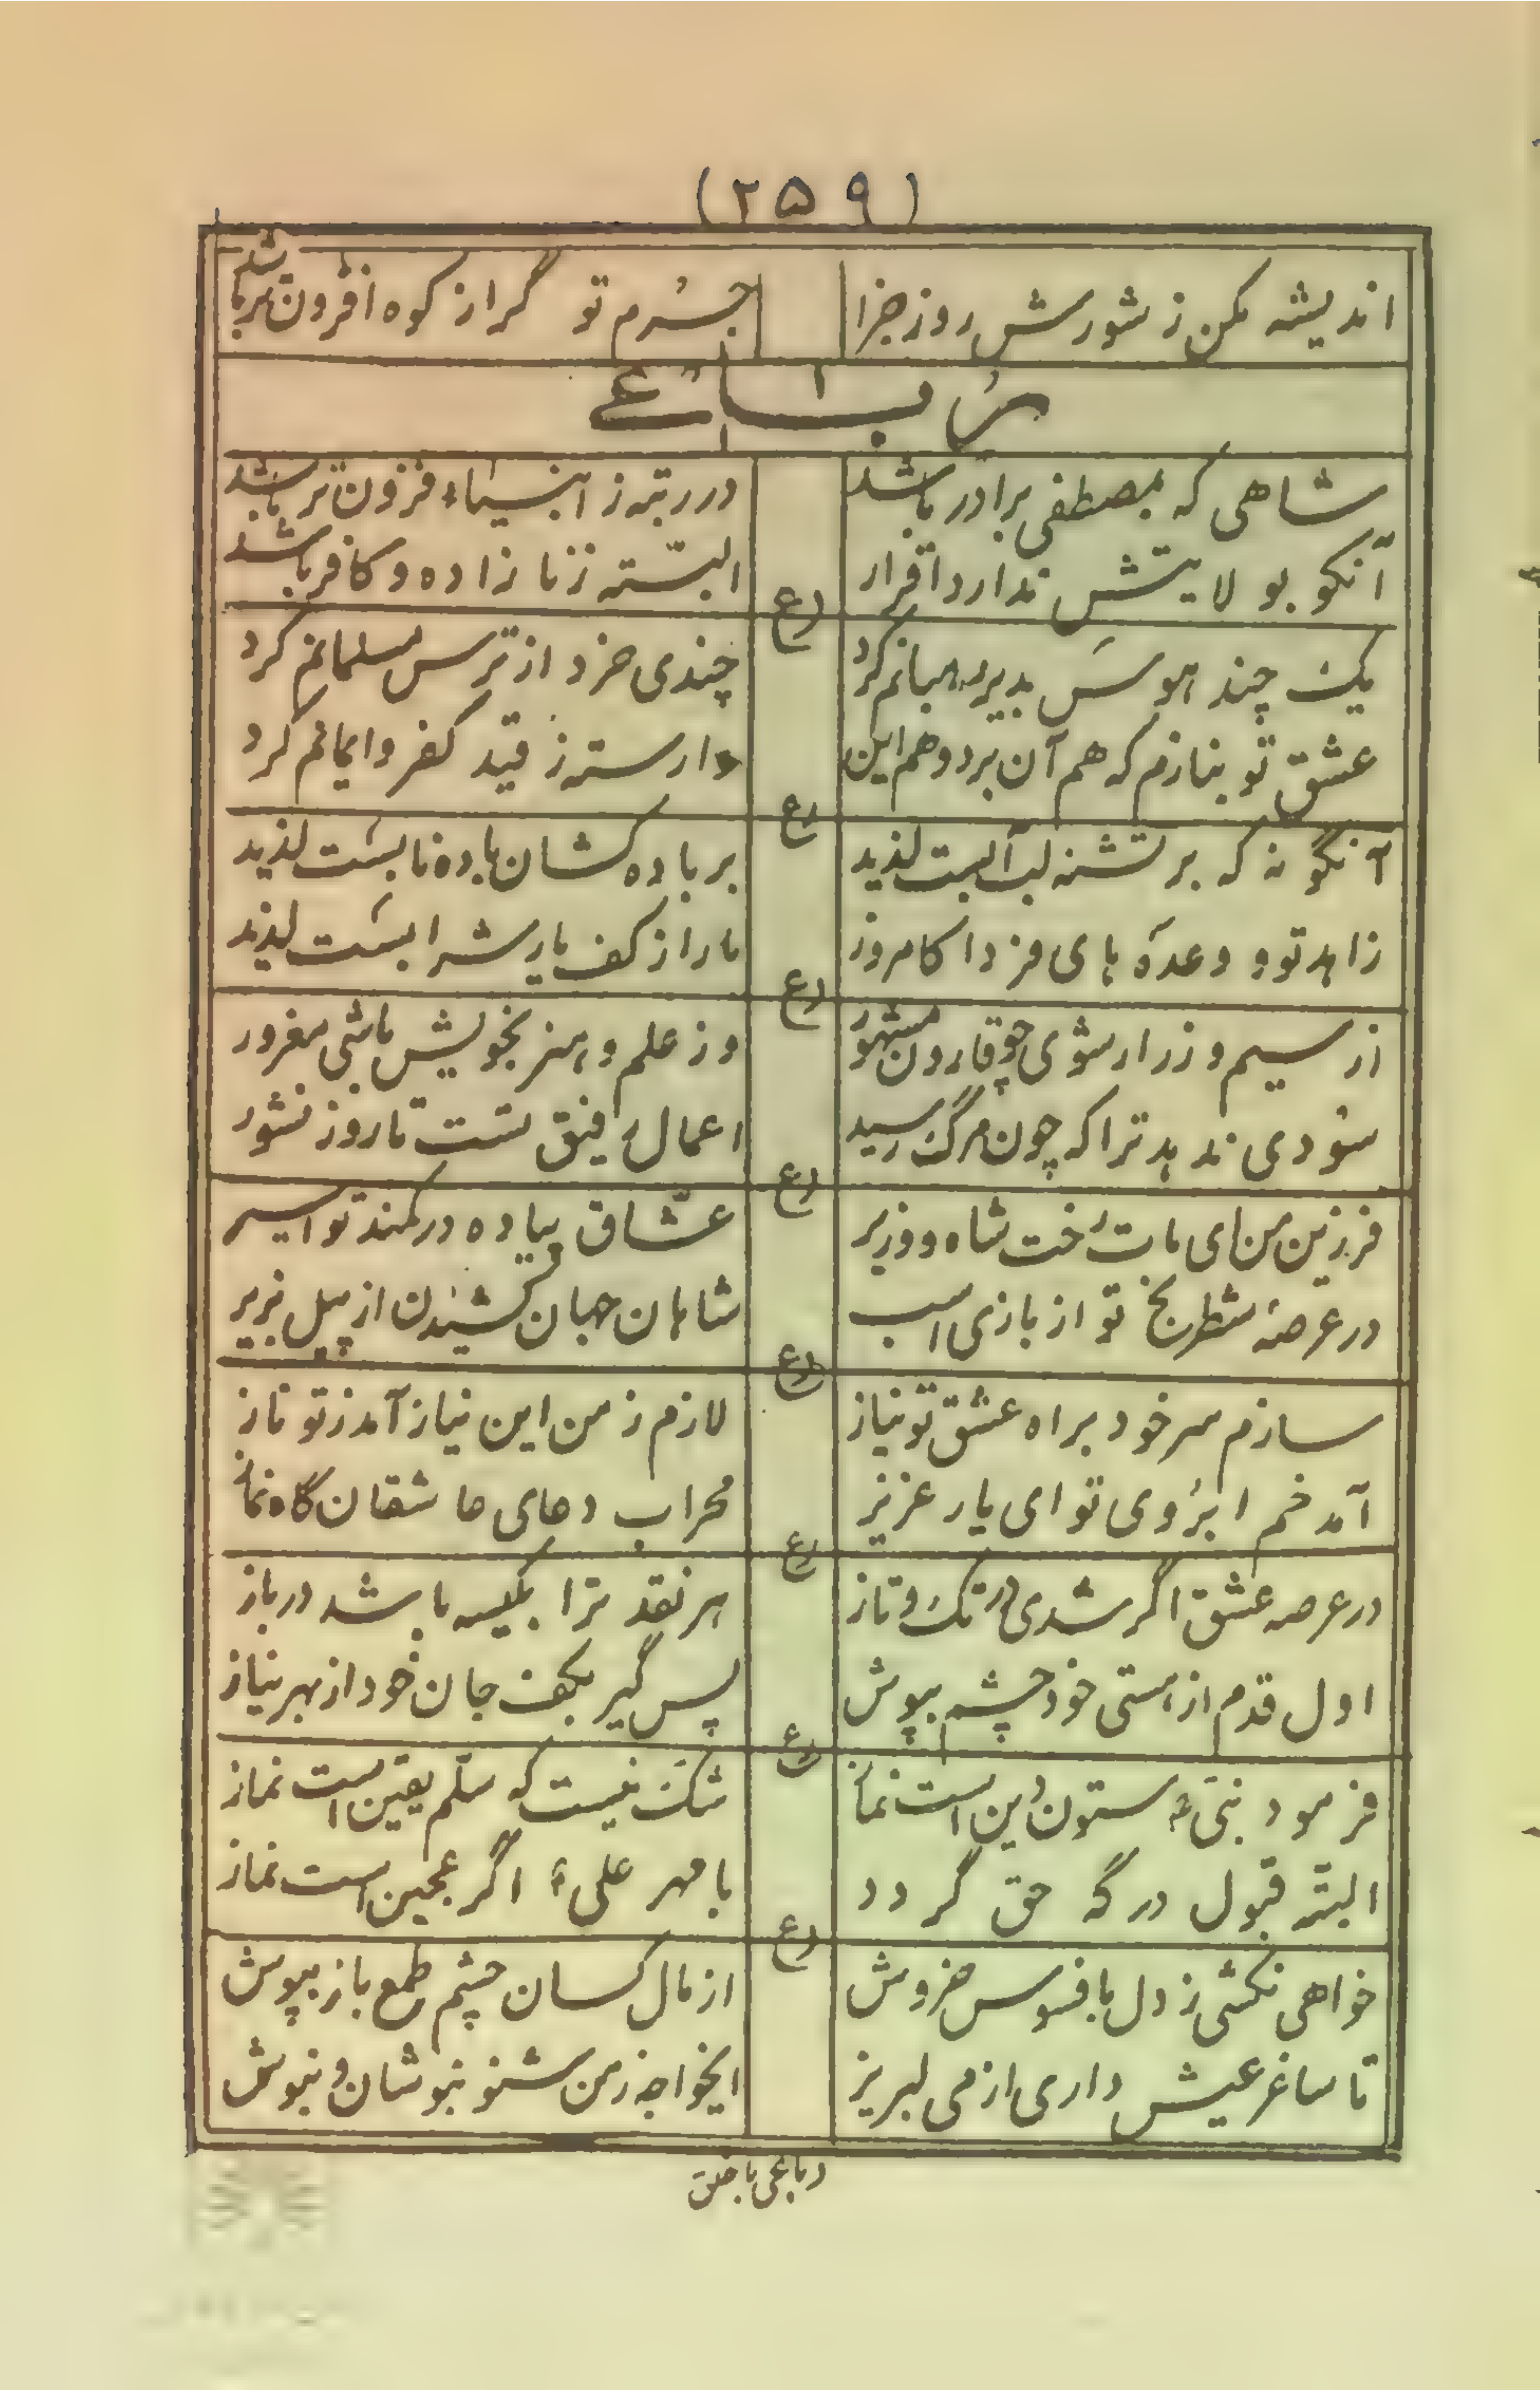 (۲۵۹)
اندیشه مکن ز شورش روز جزا جرم تو گر از کوه افزون‌تر باشد
رباعی
شاهی که بمصطفی برادر باشد در رتبه ز انبیاء فزون‌تر باشد
آنکو بولایتش ندارد اقرار البتّه ز زنا زاده و کافر باشد
رع
یک چند هوس بدیر رهبانم کرد چندی خرد از ترس مسلمانم کرد
عشق تو بنازم که هم آن برد و هم این وارسته ز قید کفر و ایمانم کرد
رع
آنگونه که بر تشنه لب آبست لذید بر باده کشان باده نابست لذید
زاهد تو و وعدهٔ بای فردا کامروز مارا از کف یار شرابست لذید
رع
از سیم و زر ار شوی چو قارون مشهور وز علم و هنر بخویش باشی مغرور
سودی ندهد ترا که چون مرگ رسید اعمال رفیق تست تا روز نشور
رع
فرزین من ای مات رخت شاه و وزیر عشّاق پیاده در کمند تو اسیر
در عرصهٔ شطرنج تو از بازی اسب شاهان جهان کشیدن از پیل بزیر
رع
سازم سر خود براه عشق تو نیاز لازم ز من این نیاز آمد ز تو ناز
آمد خم ابروی تو ای یار عزیز محراب دعای عاشقان گاه نماز
رع
در عرصه عشق اگر شدی در تک و تاز هر نقد ترا بکیسه باشد در باز
اول قدم از هستی خود چشم بپوش پس گیر بکف جان خود از بهر نیاز
رع
فرمود نبیؐ ستون دین است نماز شک نیست که سلّم یقین است نماز
البته قبول درگه حق گردد با مهر علیؑ اگر عجین است نماز
رع
خواهی نکشی ز دل بافسوس خروش از مال کسان چشم طمع باز بپوش
تا ساغر عیش داری از می لبریز ایخواجه ز من شنو بنوشان و بنوش
رباعی با خلق